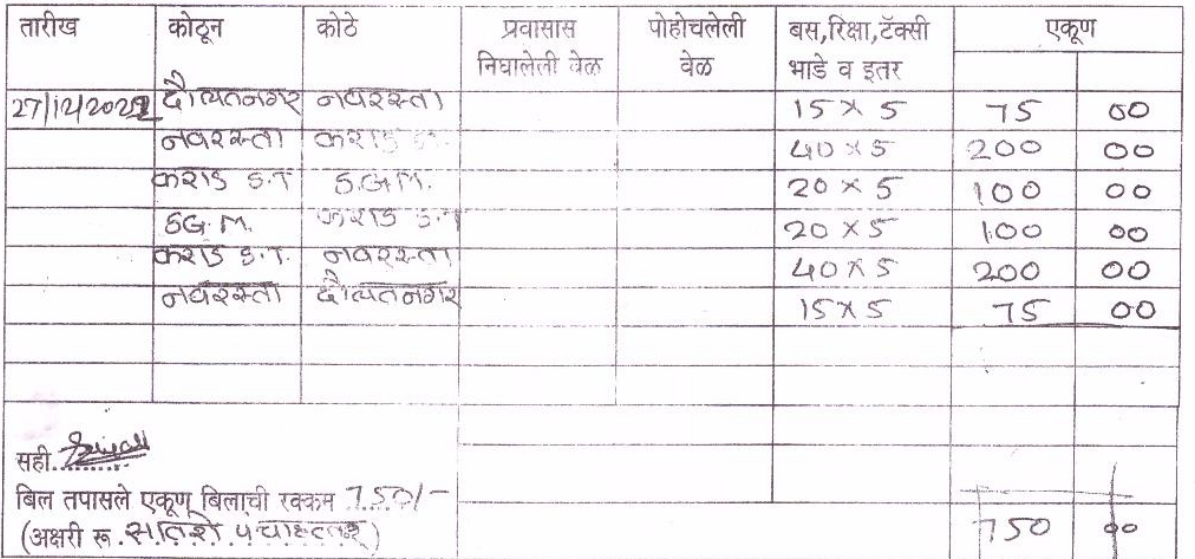 तारीख कोठून कोठे प्रवासास निघालेली वेळ पोहोचलेली वेळ बस,रिक्षा,टॅक्सी भाडे व इतर एकूण
27/12/2022 दौलतनगर नवरस्ता 15 × 5 75 00
नवरस्ता कराड S.T 40 × 5 200 00
कराड S.T S.G.M. 20 × 5 100 00
S.G.M. कराड S.T 20 × 5 100 00
कराड S.T. नवरस्ता 40 × 5 200 00
नवरस्ता दौलतनगर 15 × 5 75 00
सही..........
बिल तपासले एकूण बिलाची रक्कम 750/-
(अक्षरी रू. सातशे पंचाहत्तर) 750 00